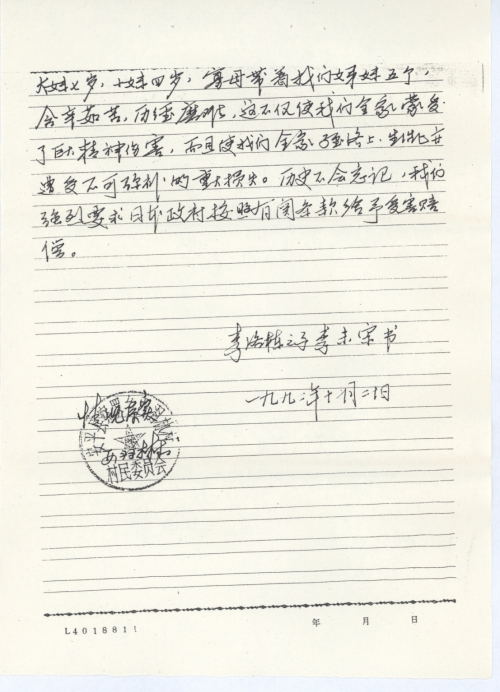 大妹七岁，小妹四岁，寡母带着我们姊妹五个，
含辛茹苦，历经磨难，这不仅使我们全家蒙受
了巨大精神伤害，而且使我们全家经济上、生活上
遭受不可弥补的重大损失。历史不会忘记，我们
强烈要求日本政府按照有关条款给予受害赔
偿。
李 栋之子李 书
一九九 年十月二 日
情况属实
村民委员会
L401881
年 月 日